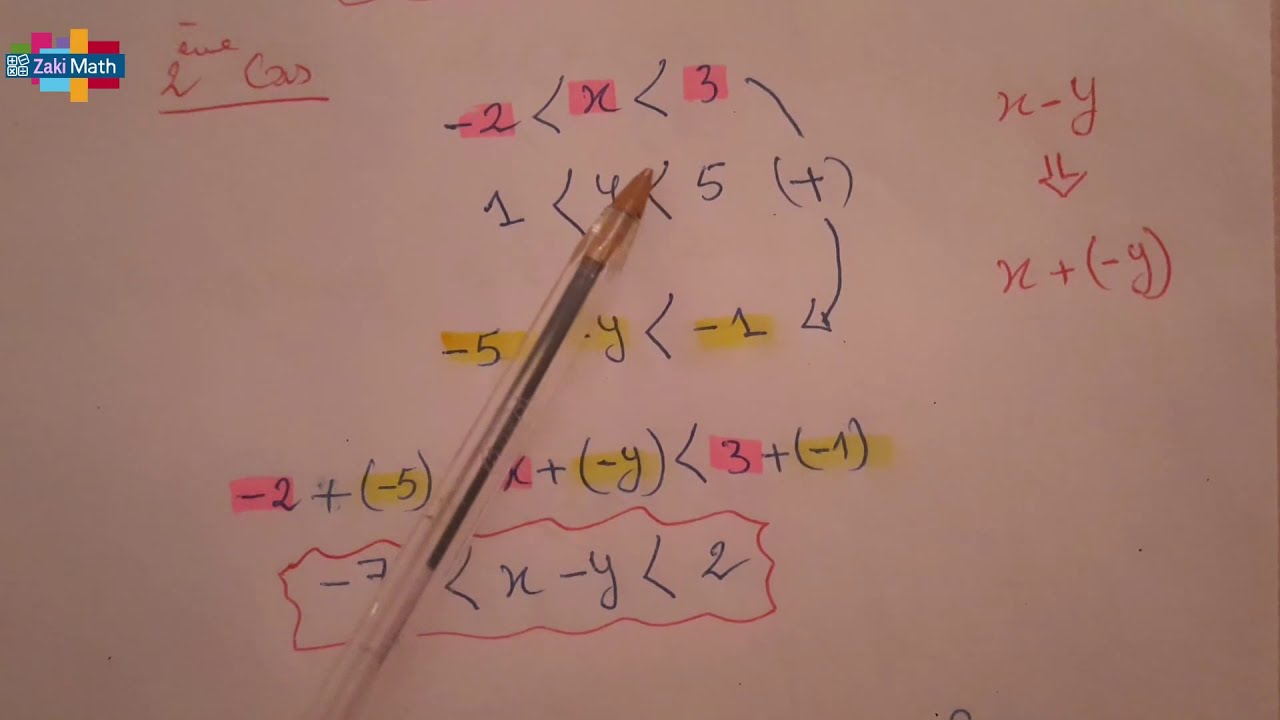 Zaki Math
2ème Cas
-2 < x < 3
1 < y < 5 (+)
-5 -y < -1
-2 + (-5) x + (-y) < 3 + (-1)
-7 < x - y < 2
x - y
⇓
x + (-y)